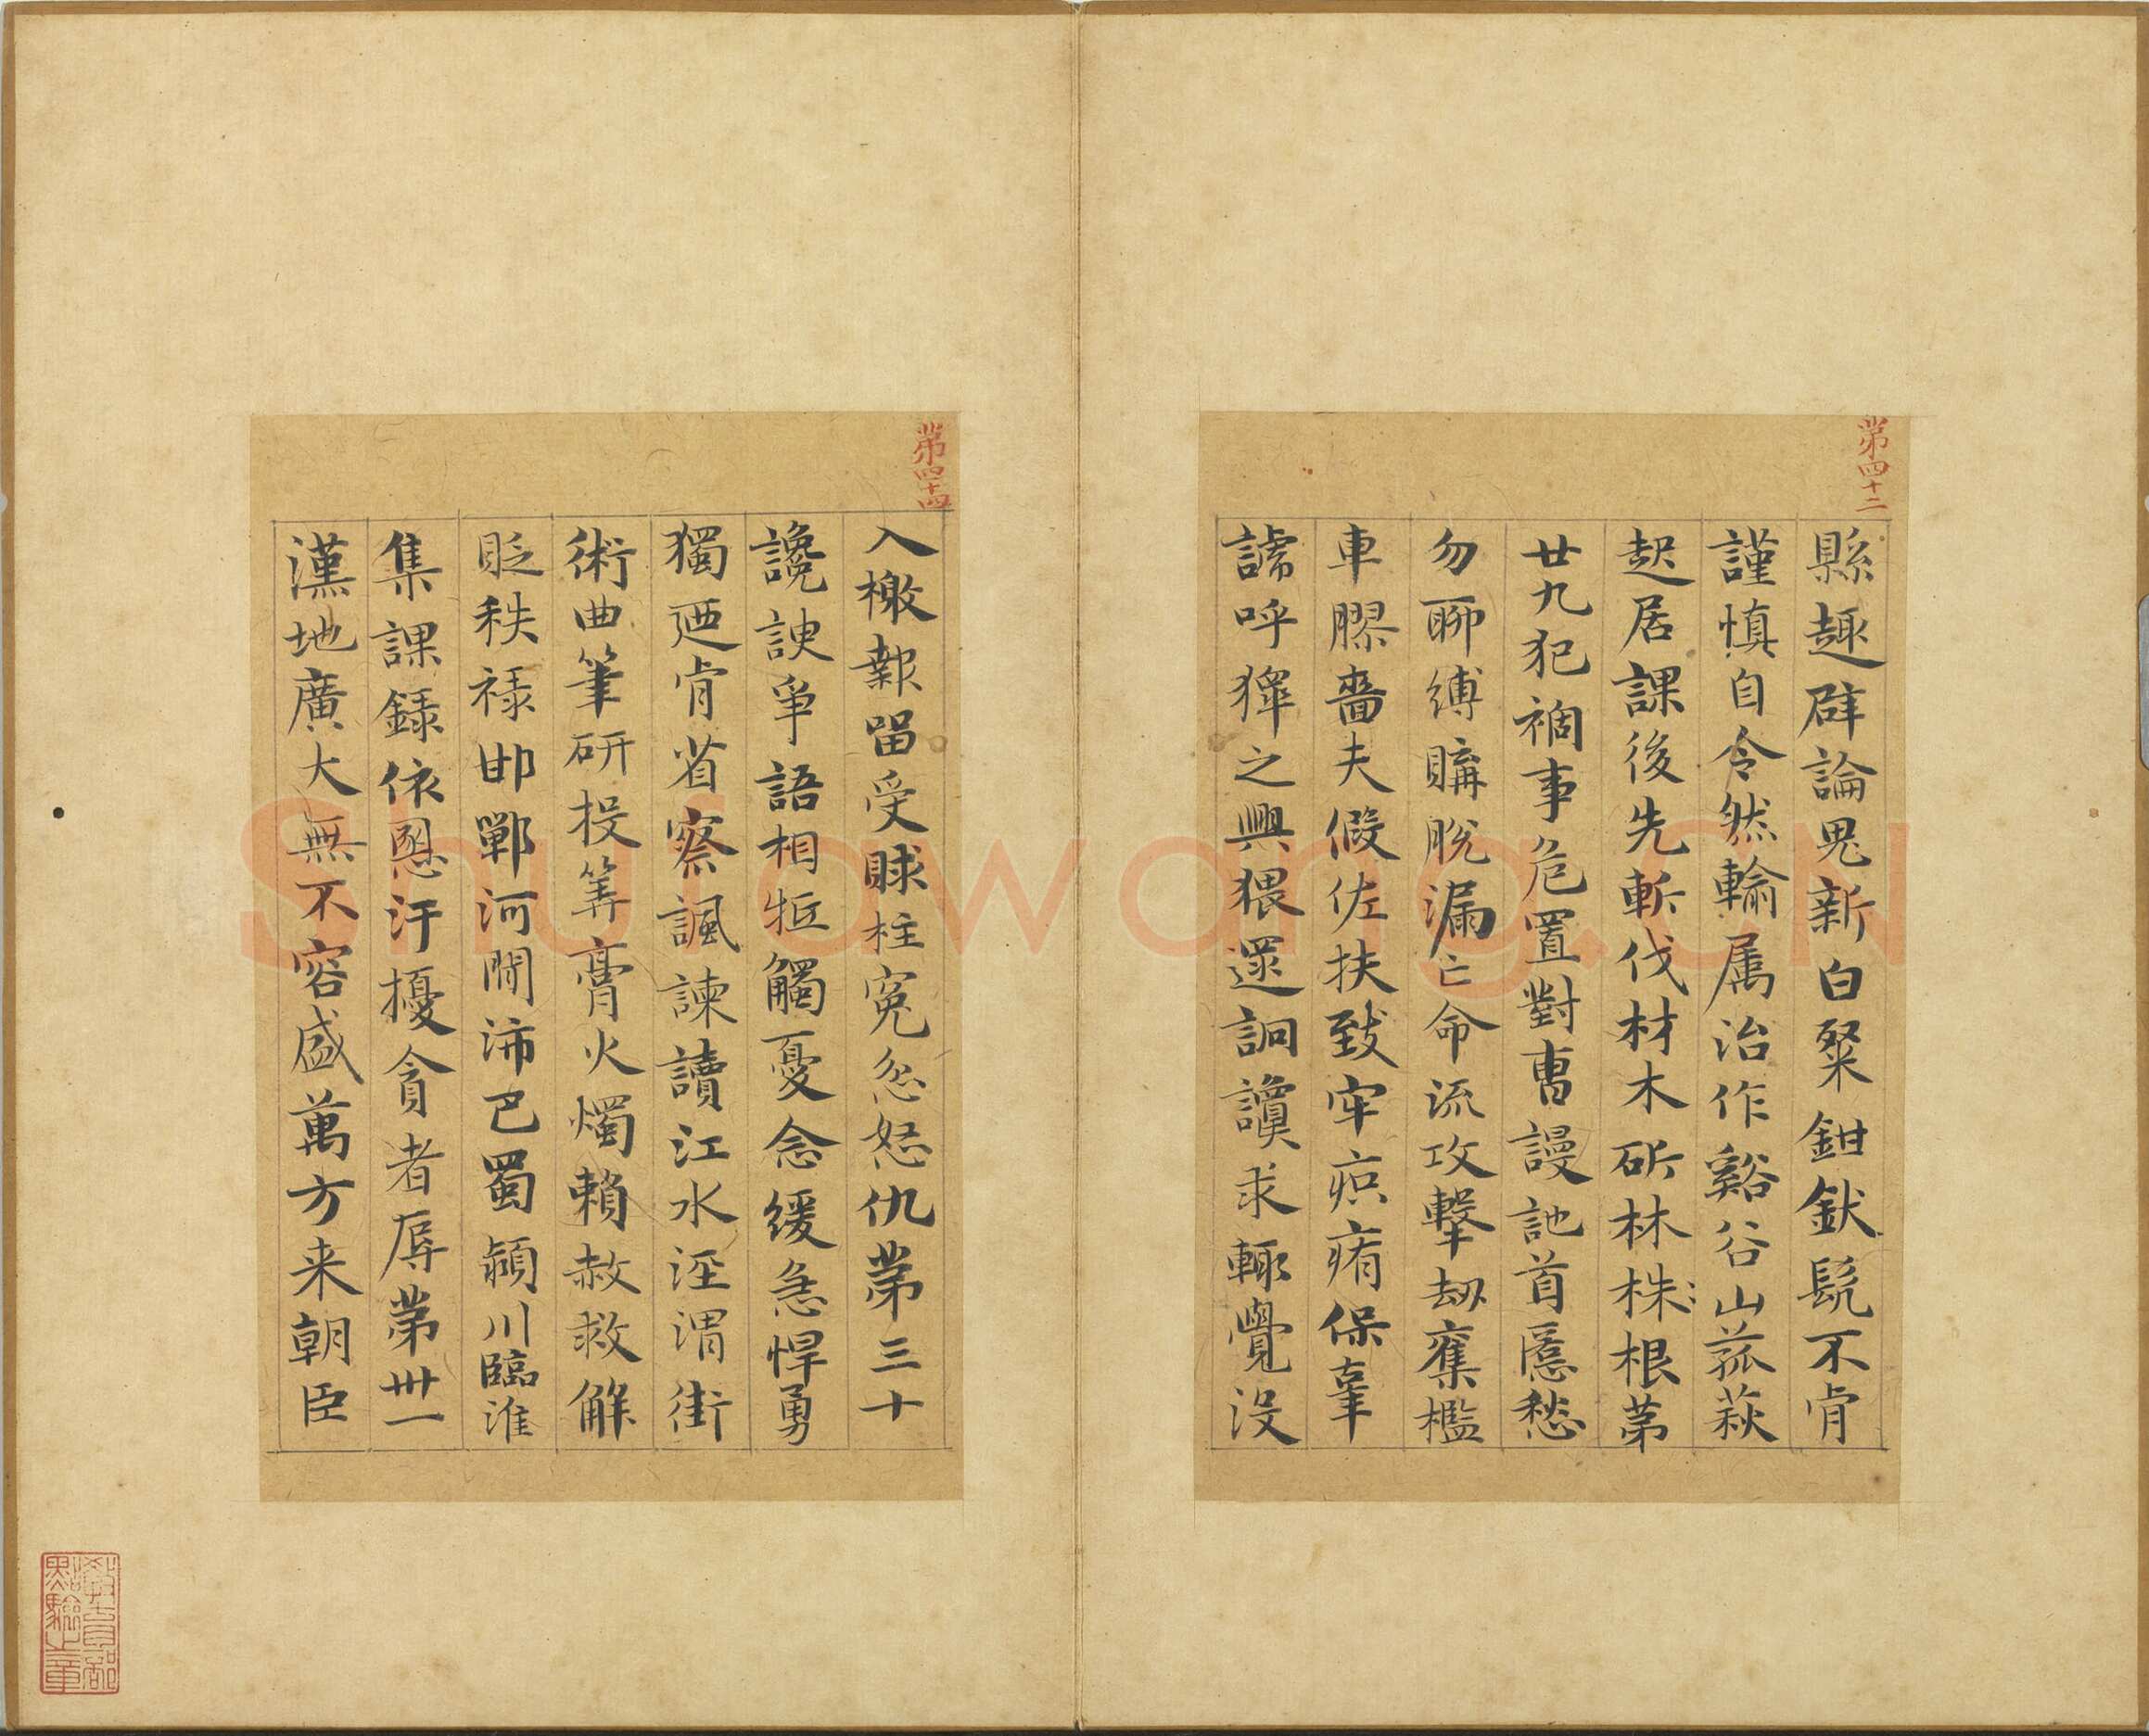 第四十二
縣趣辟論鬼新白粲鉗釱髡不肯
謹慎自令然輸属治作谿谷山菰萩
起居課後先斬伐材木斫林株根第
廿九犯禍事危置對曹謾訑首匿愁
勿聊縛購脫漏亡命流攻擊劫奪檻
車膠嗇夫假佐扶致牢疻痏保辜
諕呼獋之興猥逯詗讂求輒覺没
第四十四
入檄報留受賕枉冤忿怒仇第三十
讒諛爭語相牴觸憂念緩急悍勇
獨迺肯省察諷諫讀江水涇渭街
術曲筆研投筭膏火燭賴赦救解
貶秩禄邯鄲河間沛巴蜀潁川臨淮
集課録依恩汙擾貪者辱第卅一
漢地廣大無不容盛萬方来朝臣
教育部
點驗之章
Shufawang.CN